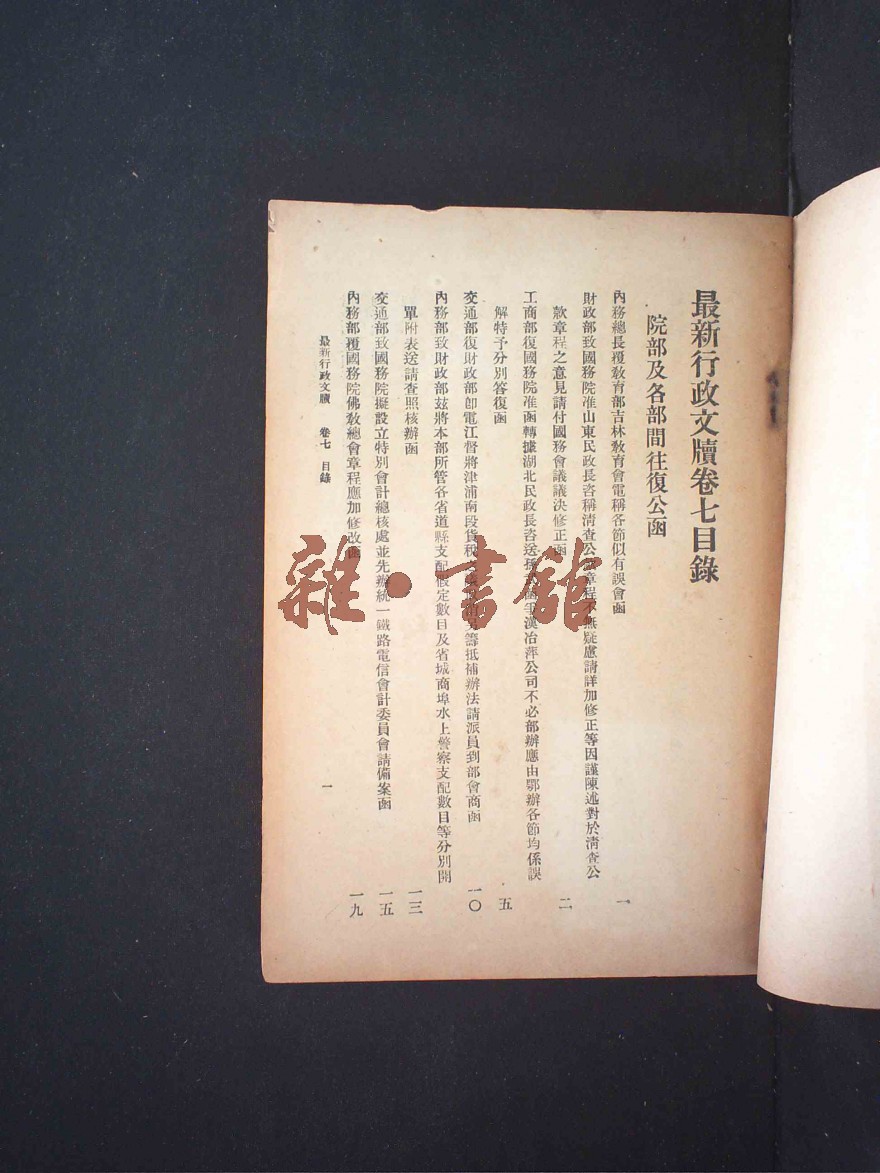 最新行政文牘卷七目錄
院部及各部間往復公函
內務總長覆敎育部吉林敎育會電稱各節似有誤會函 一
財政部致國務院准山東民政長咨稱淸查公款章程不無疑慮請詳加修正等因謹陳述對於淸查公
款章程之意見請付國務會議議決修正函 二
工商部復國務院准函轉據湖北民政長咨送孫 漢冶萍公司不必部辦應由鄂辦各節均係誤
解特予分別答復函 五
交通部復財政部卽電江督將津浦南段貨稅 另籌抵補辦法請派員到部會商函 一〇
內務部致財政部玆將本部所管各省道縣支配假定數目及省城商埠水上警察支配數目等分別開
單附表送請查照核辦函 一三
交通部致國務院擬設立特別會計總核處並先辦統一鐵路電信會計委員會請備案函 一五
內務部覆國務院佛敎總會章程應加修改函 一九
最新行政文牘 卷七 目錄 一
雜·書館